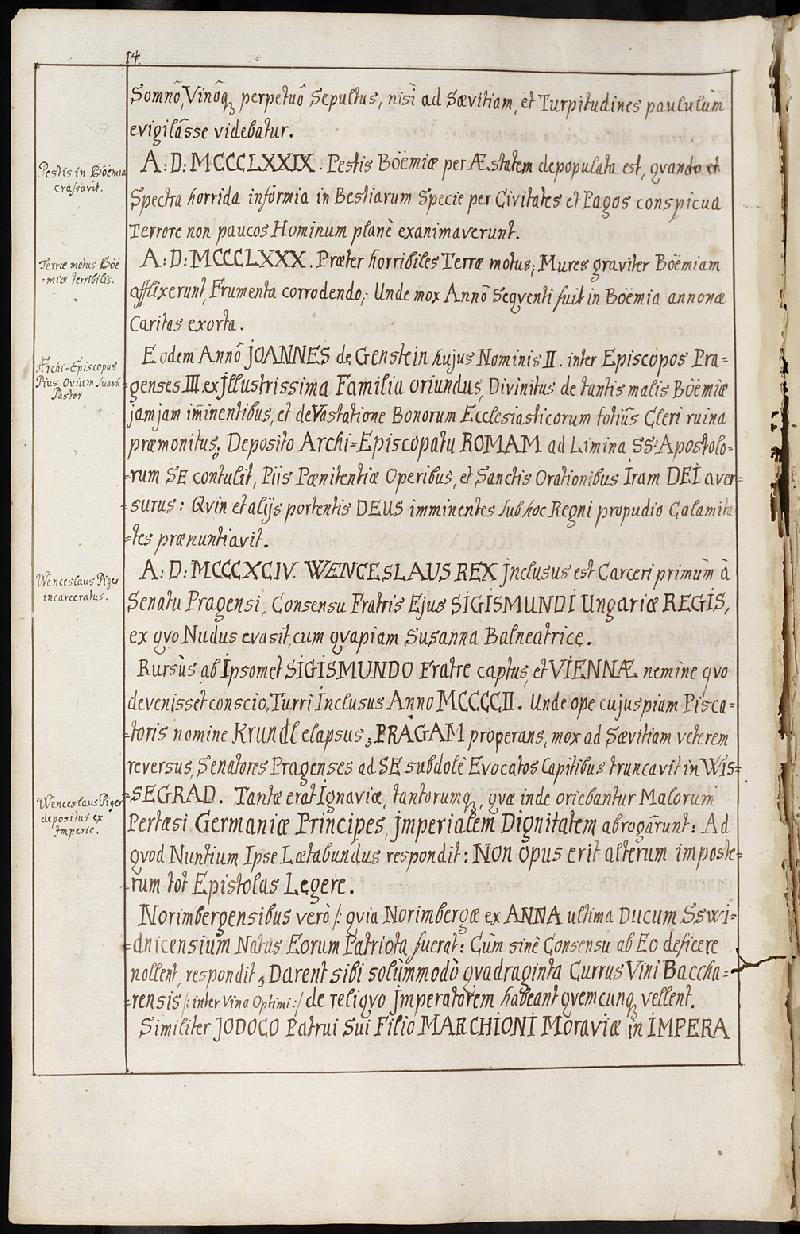 14.
Somnô, Vinôq₃ perpetuô Sepultus, nisi ad Sævitiam, et Turpitudines paululùm
evigilâsse videbatur.
Pestis in Boëmia
crassavit.
A: D: MCCCLXXIX. Pestis Boëmiæ per Æstatem depopulata est, qvando et
Spectra horrida informia in Bestiarum Specie per Civitates et Pagos conspicua
Terrore non paucos Hominum planè exanimaverunt.
Terræ motus Boë
-miæ terribilis.
A: D: MCCCLXXX. Præter horribiles Terræ motus; Mures graviter Boëmiam
afflixerunt, Frumenta corrodendo; Unde mox Annô Seqventi fuit in Boëmia annonæ
Caritas exorta.
Archi-Episcopus
Pius Ovium suarū
Pastor
Eodem Annô JOANNES de Genstein hujus Nominis II. inter Episcopos Pra=
genses III. ex Jllustrissima Familia oriundus, Divinitus de tantis malis Boëmiæ
jamjam im̃inentibus, et deVastatione Bonorum Ecclesiasticorum totiûs Cleri ruina
præmonitus, Deposito Archi=Episcopatu ROMAM ad Limina SS: Apostolo-
-rum SE contulit, Piis Pœnitentiæ Operibus, et Sanctis Orationibus Iram DEI aver=
-surus: Qvin et alijs portentis DEUS imminentes sub hoc Regni propudio Calamita
-tes prænuntiavit.
Wenceslaus Piger
incarceratus.
A: D: MCCCXCIV. WENCESLAUS REX Jnclusus est Carceri primùm à
Senatu Pragensi, Consensu Fratris Ejus SIGISMUNDI Ungariæ REGIS,
ex qvo Nudus evasit cum qvapiam Susanna Balneatrice.
Rursùs ab Ipsomet SIGISMUNDO Fratre captus, et VIENNÆ nemine qvo
devenisset conscio, Turri Inclusus Anno MCCCCII. Unde ope cujuspiam Pisca=
-toris nomine Krundl elapsus, PRAGAM properans, mox ad Sævitiam veterem
reversus, Senatores Pragenses ad SE subdolè Evocatos Capitibus truncavit in WIS=
Wenceslaus Piger
depositus ex
Imperio.
-SEGRAD. Tantæ erat Ignaviæ, tantorumq₃, qvæ inde oriebantur Malorum
Pertæsi Germaniæ Principes, jmperialem Dignitatem abrogârunt: Ad
qvod Nuntium Ipse Lætabundus respondit: Non opus erit alterum imposte=
-rum tot Epistolas Legere.
Norimbergensibus verò /: qvia Norimbergæ ex ANNA ultima Ducum Sswi-
-dnicensium Natus Eorum Patriota fuerat: Cùm sinè Consensu ab Eo deficere
nollent, respondit, Darent sibi solùmmodò qvadraginta Currus Vini Baccha=
-rensis /: inter Vina Optimi :/ de reliqvo Jmperatorem habeant qvemcunq₃ vellent.
Similiter JODOCO Patrui Sui Filio MARCHIONI Moraviæ in IMPERA